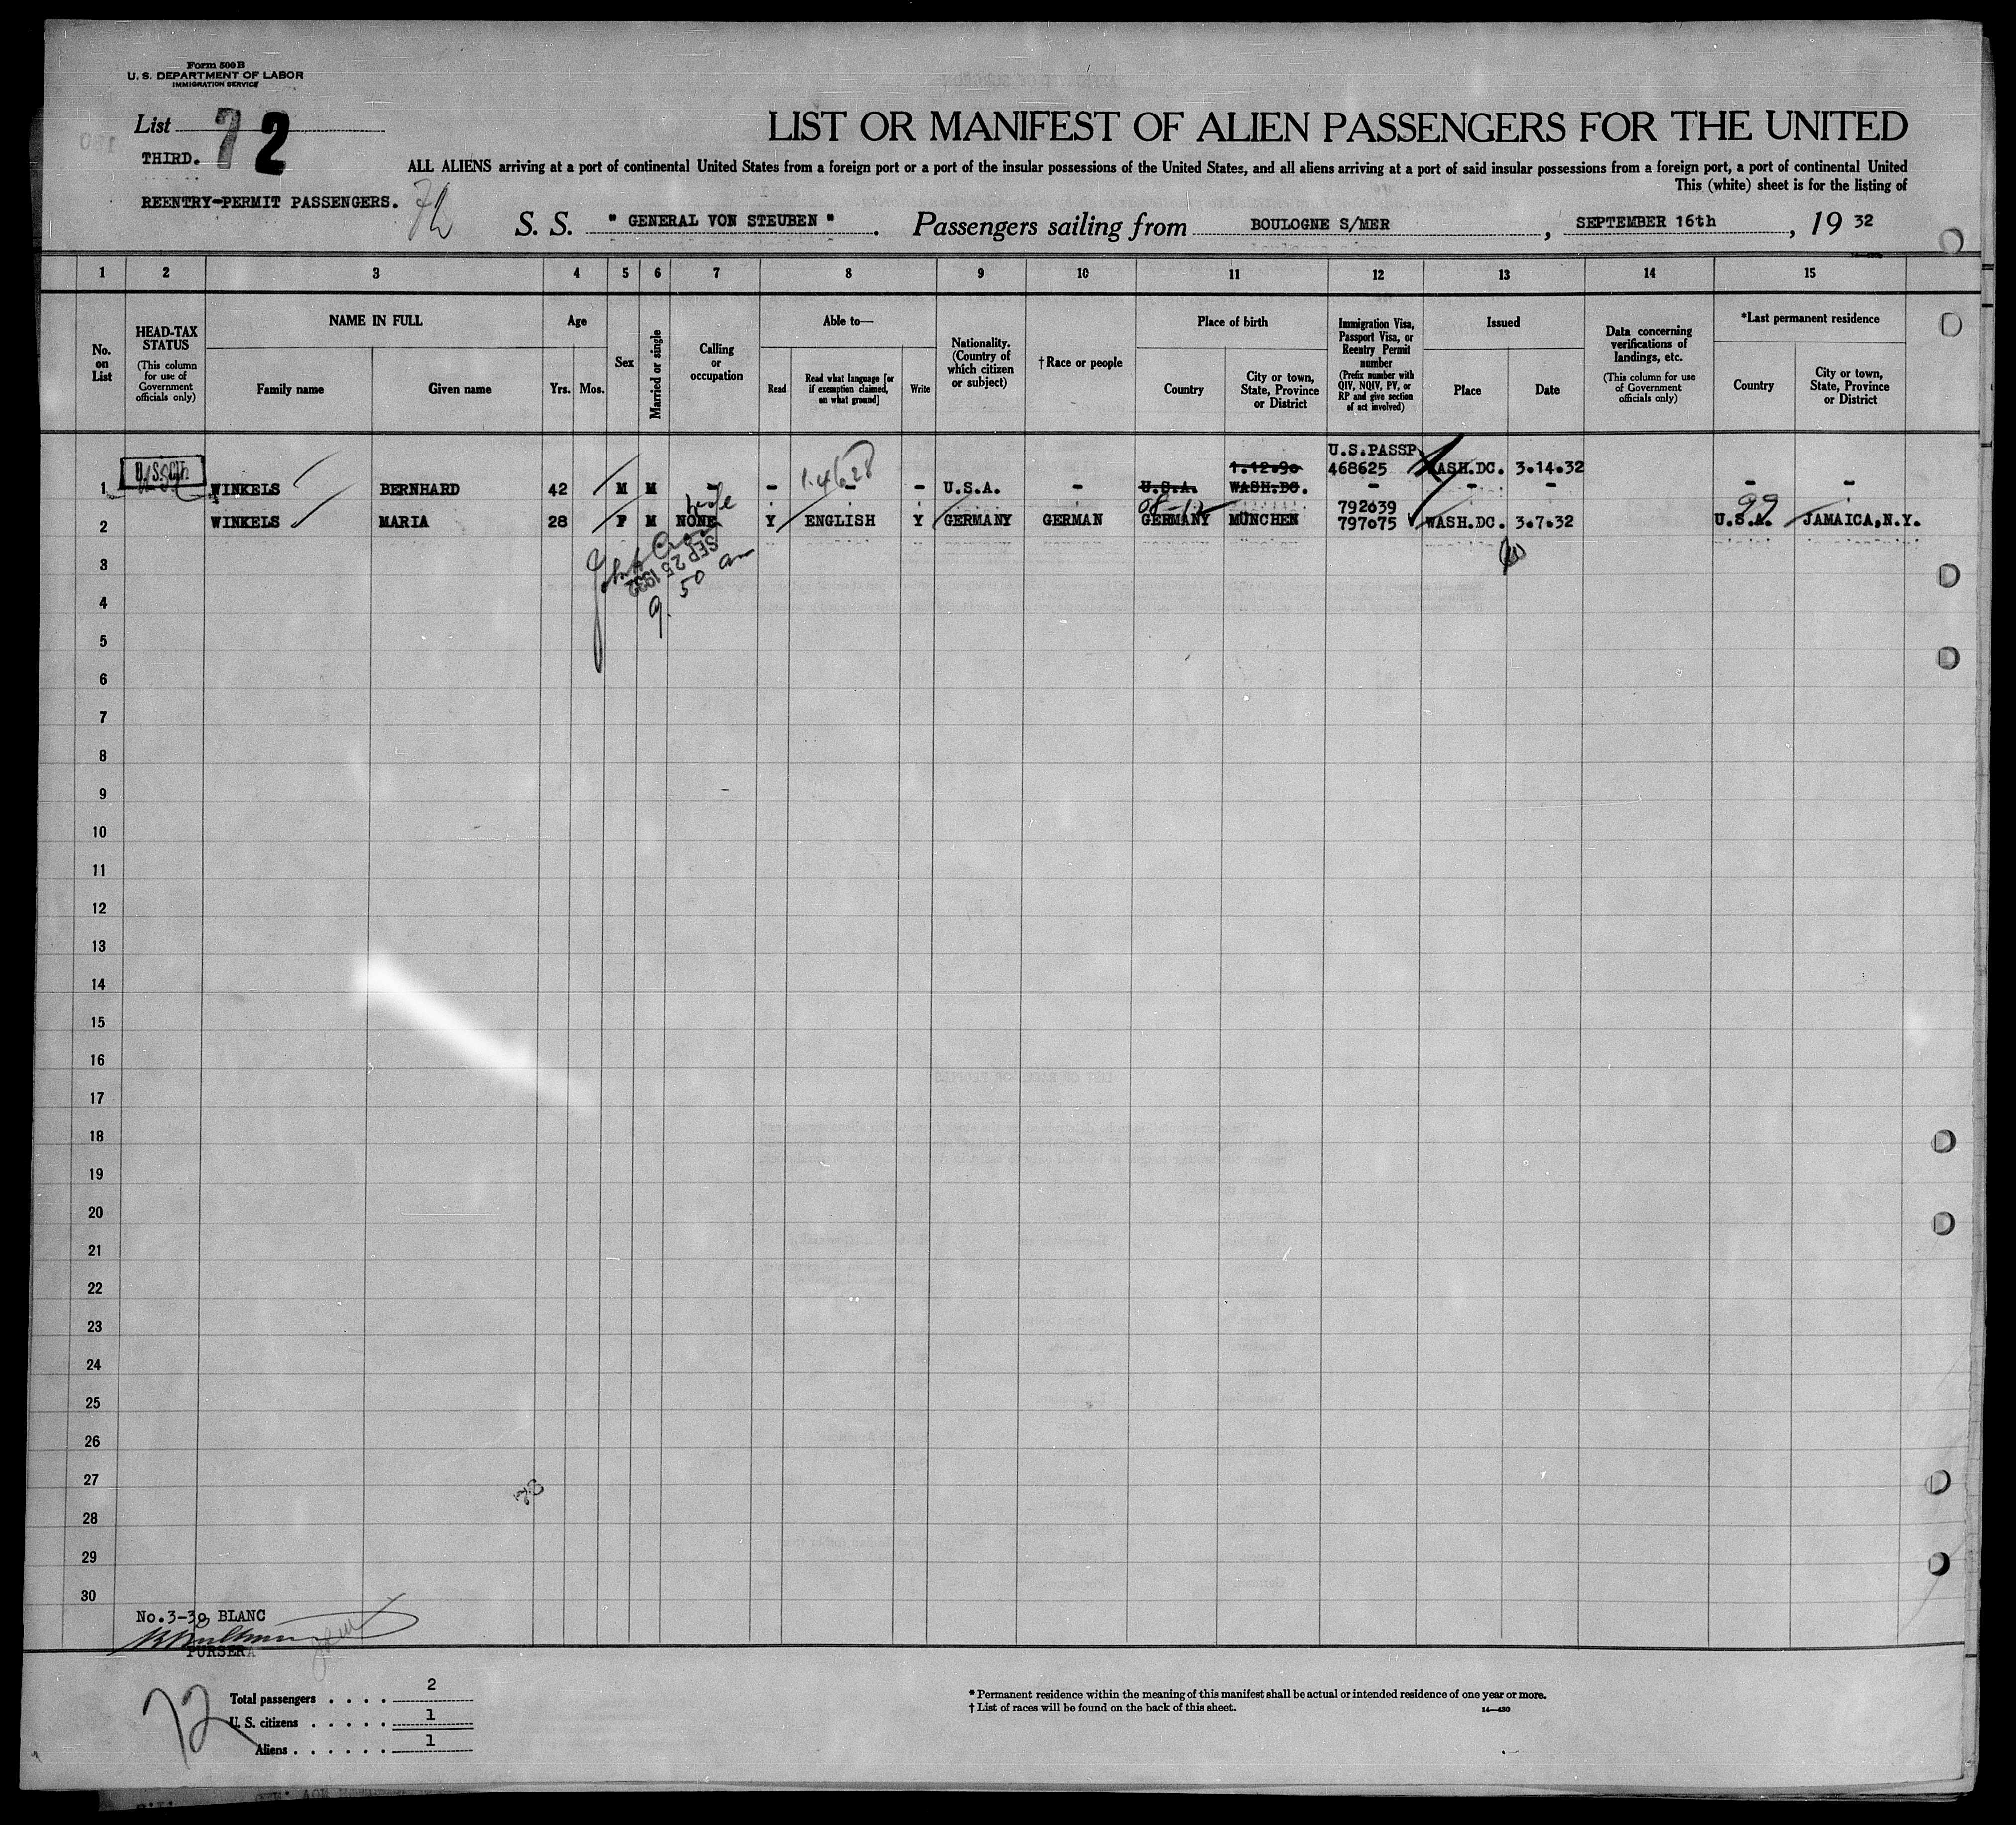 Form 500 B
U. S. DEPARTMENT OF LABOR
IMMIGRATION SERVICE
List 72
THIRD.
REENTRY-PERMIT PASSENGERS.
72
LIST OR MANIFEST OF ALIEN PASSENGERS FOR THE UNITED
ALL ALIENS arriving at a port of continental United States from a foreign port or a port of the insular possessions of the United States, and all aliens arriving at a port of said insular possessions from a foreign port, a port of continental United
This (white) sheet is for the listing of
S. S. " GENERAL VON STEUBEN " . Passengers sailing from BOULOGNE S/MER , SEPTEMBER 16th , 19 32
1 2 3 4 5 6 7 8 9 10 11 12 13 14 15
No. on List
HEAD-TAX STATUS
(This column for use of Government officials only)
NAME IN FULL
Family name
Given name
Age
Yrs. Mos.
Sex
Married or single
Calling or occupation
Able to—
Read
Read what language [or if exemption claimed, on what ground]
Write
Nationality. (Country of which citizen or subject)
† Race or people
Place of birth
Country
City or town, State, Province or District
Immigration Visa, Passport Visa, or Reentry Permit number
(Prefix number with QIV, NQIV, PV, or RP and give section of act involved)
Issued
Place
Date
Data concerning verifications of landings, etc.
(This column for use of Government officials only)
*Last permanent residence
Country
City or town, State, Province or District
U.S. PASSP.
1.12.90 468625 WASH.DC. 3.14.32
1 WINKELS BERNHARD 42 M M - - - - U.S.A. - U.S.A. WASH.DC. - - - - -
1.4628
wife
08-12
99
792639
2 WINKELS MARIA 28 F M NONE Y ENGLISH Y GERMANY GERMAN GERMANY MÜNCHEN 797075 WASH.DC. 3.7.32 U.S.A. JAMAICA, N.Y.
SEP 25 1932
9.50 am
3
4
5
6
7
8
9
10
11
12
13
14
15
16
17
18
19
20
21
22
23
24
25
26
27
28
29
30
No.3-30 BLANC
PURSER
72
Total passengers . . . . 2
U. S. citizens . . . . . 1
Aliens . . . . . . 1
* Permanent residence within the meaning of this manifest shall be actual or intended residence of one year or more.
† List of races will be found on the back of this sheet.
14—430